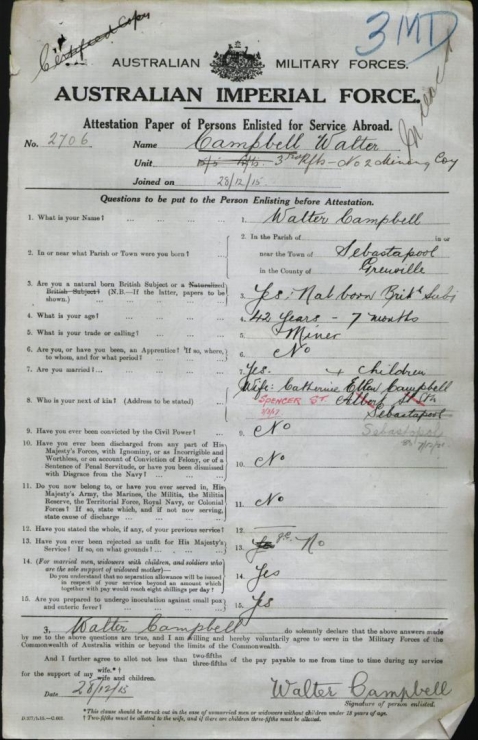 Certified Copy
3MD
AUSTRALIAN MILITARY FORCES.
AUSTRALIAN IMPERIAL FORCE.
Attestation Paper of Persons Enlisted for Service Abroad.
No. 2706 Name Campbell Walter
Unit 3rd Rfts - No 2 Mining Coy
Joined on 28/12/15
Questions to be put to the Person Enlisting before Attestation.
1. What is your Name? ... ... ... ... 1. Walter Campbell
2. In or near what Parish or Town were you born? ... 2. In the Parish of in or
near the Town of Sebastapool
in the County of Grenville
3. Are you a natural born British Subject or a Naturalized 3. Yes: Nat born Brit Subj
British Subject? (N.B.—If the latter, papers to be
shown.)
4. What is your age? ... ... ... ... 4. 42 Years - 7 months
5. What is your trade or calling? ... ... ... 5. Miner
6. Are you, or have you been, an Apprentice? If so, where, 6. No
to whom, and for what period?
7. Are you married? ... ... ... ... 7. Yes. + children
8. Who is your next of kin? (Address to be stated) ... 8. Wife: Catherine Ellen Campbell
SPENCER ST. Albert St
Sebastapool
9. Have you ever been convicted by the Civil Power? ... 9. No
10. Have you ever been discharged from any part of His 10. No
Majesty's Forces, with Ignominy, or as Incorrigible and
Worthless, or on account of Conviction of Felony, or of a
Sentence of Penal Servitude, or have you been dismissed
with Disgrace from the Navy?
11. Do you now belong to, or have you ever served in, His 11. No
Majesty's Army, the Marines, the Militia, the Militia
Reserve, the Territorial Force, Royal Navy, or Colonial
Forces? If so, state which, and if not now serving,
state cause of discharge
12. Have you stated the whole, if any, of your previous service? 12.
13. Have you ever been rejected as unfit for His Majesty's 13. No
Service? If so, on what grounds?
14. (For married men, widowers with children, and soldiers who 14. Yes
are the sole support of widowed mother)—
Do you understand that no separation allowance will be issued
in respect of your service beyond an amount which
together with pay would reach eight shillings per day?
15. Are you prepared to undergo inoculation against small pox 15. Yes
and enteric fever?
I, Walter Campbell do solemnly declare that the above answers made
by me to the above questions are true, and I am willing and hereby voluntarily agree to serve in the Military Forces of the
Commonwealth of Australia within or beyond the limits of the Commonwealth.
And I further agree to allot not less than two-fifths three-fifths of the pay payable to me from time to time during my service
for the support of my wife.*† wife and children.
Date 28/12/15 Walter Campbell
Signature of person enlisted.
*This clause should be struck out in the case of unmarried men or widowers without children under 18 years of age.
†Two-fifths must be allotted to the wife, and if there are children three-fifths must be allotted.